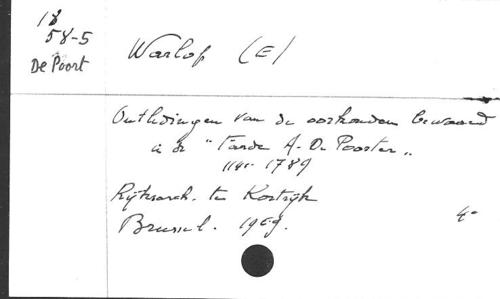 18
58-5
De Poort
Warlop (E)
Ontledingen van de oorkonden bewaard
in de "Fonds A. De Poorter„
11  - 1789
Rijksarch. te Kortrijk
Brussel. 1969.
4°